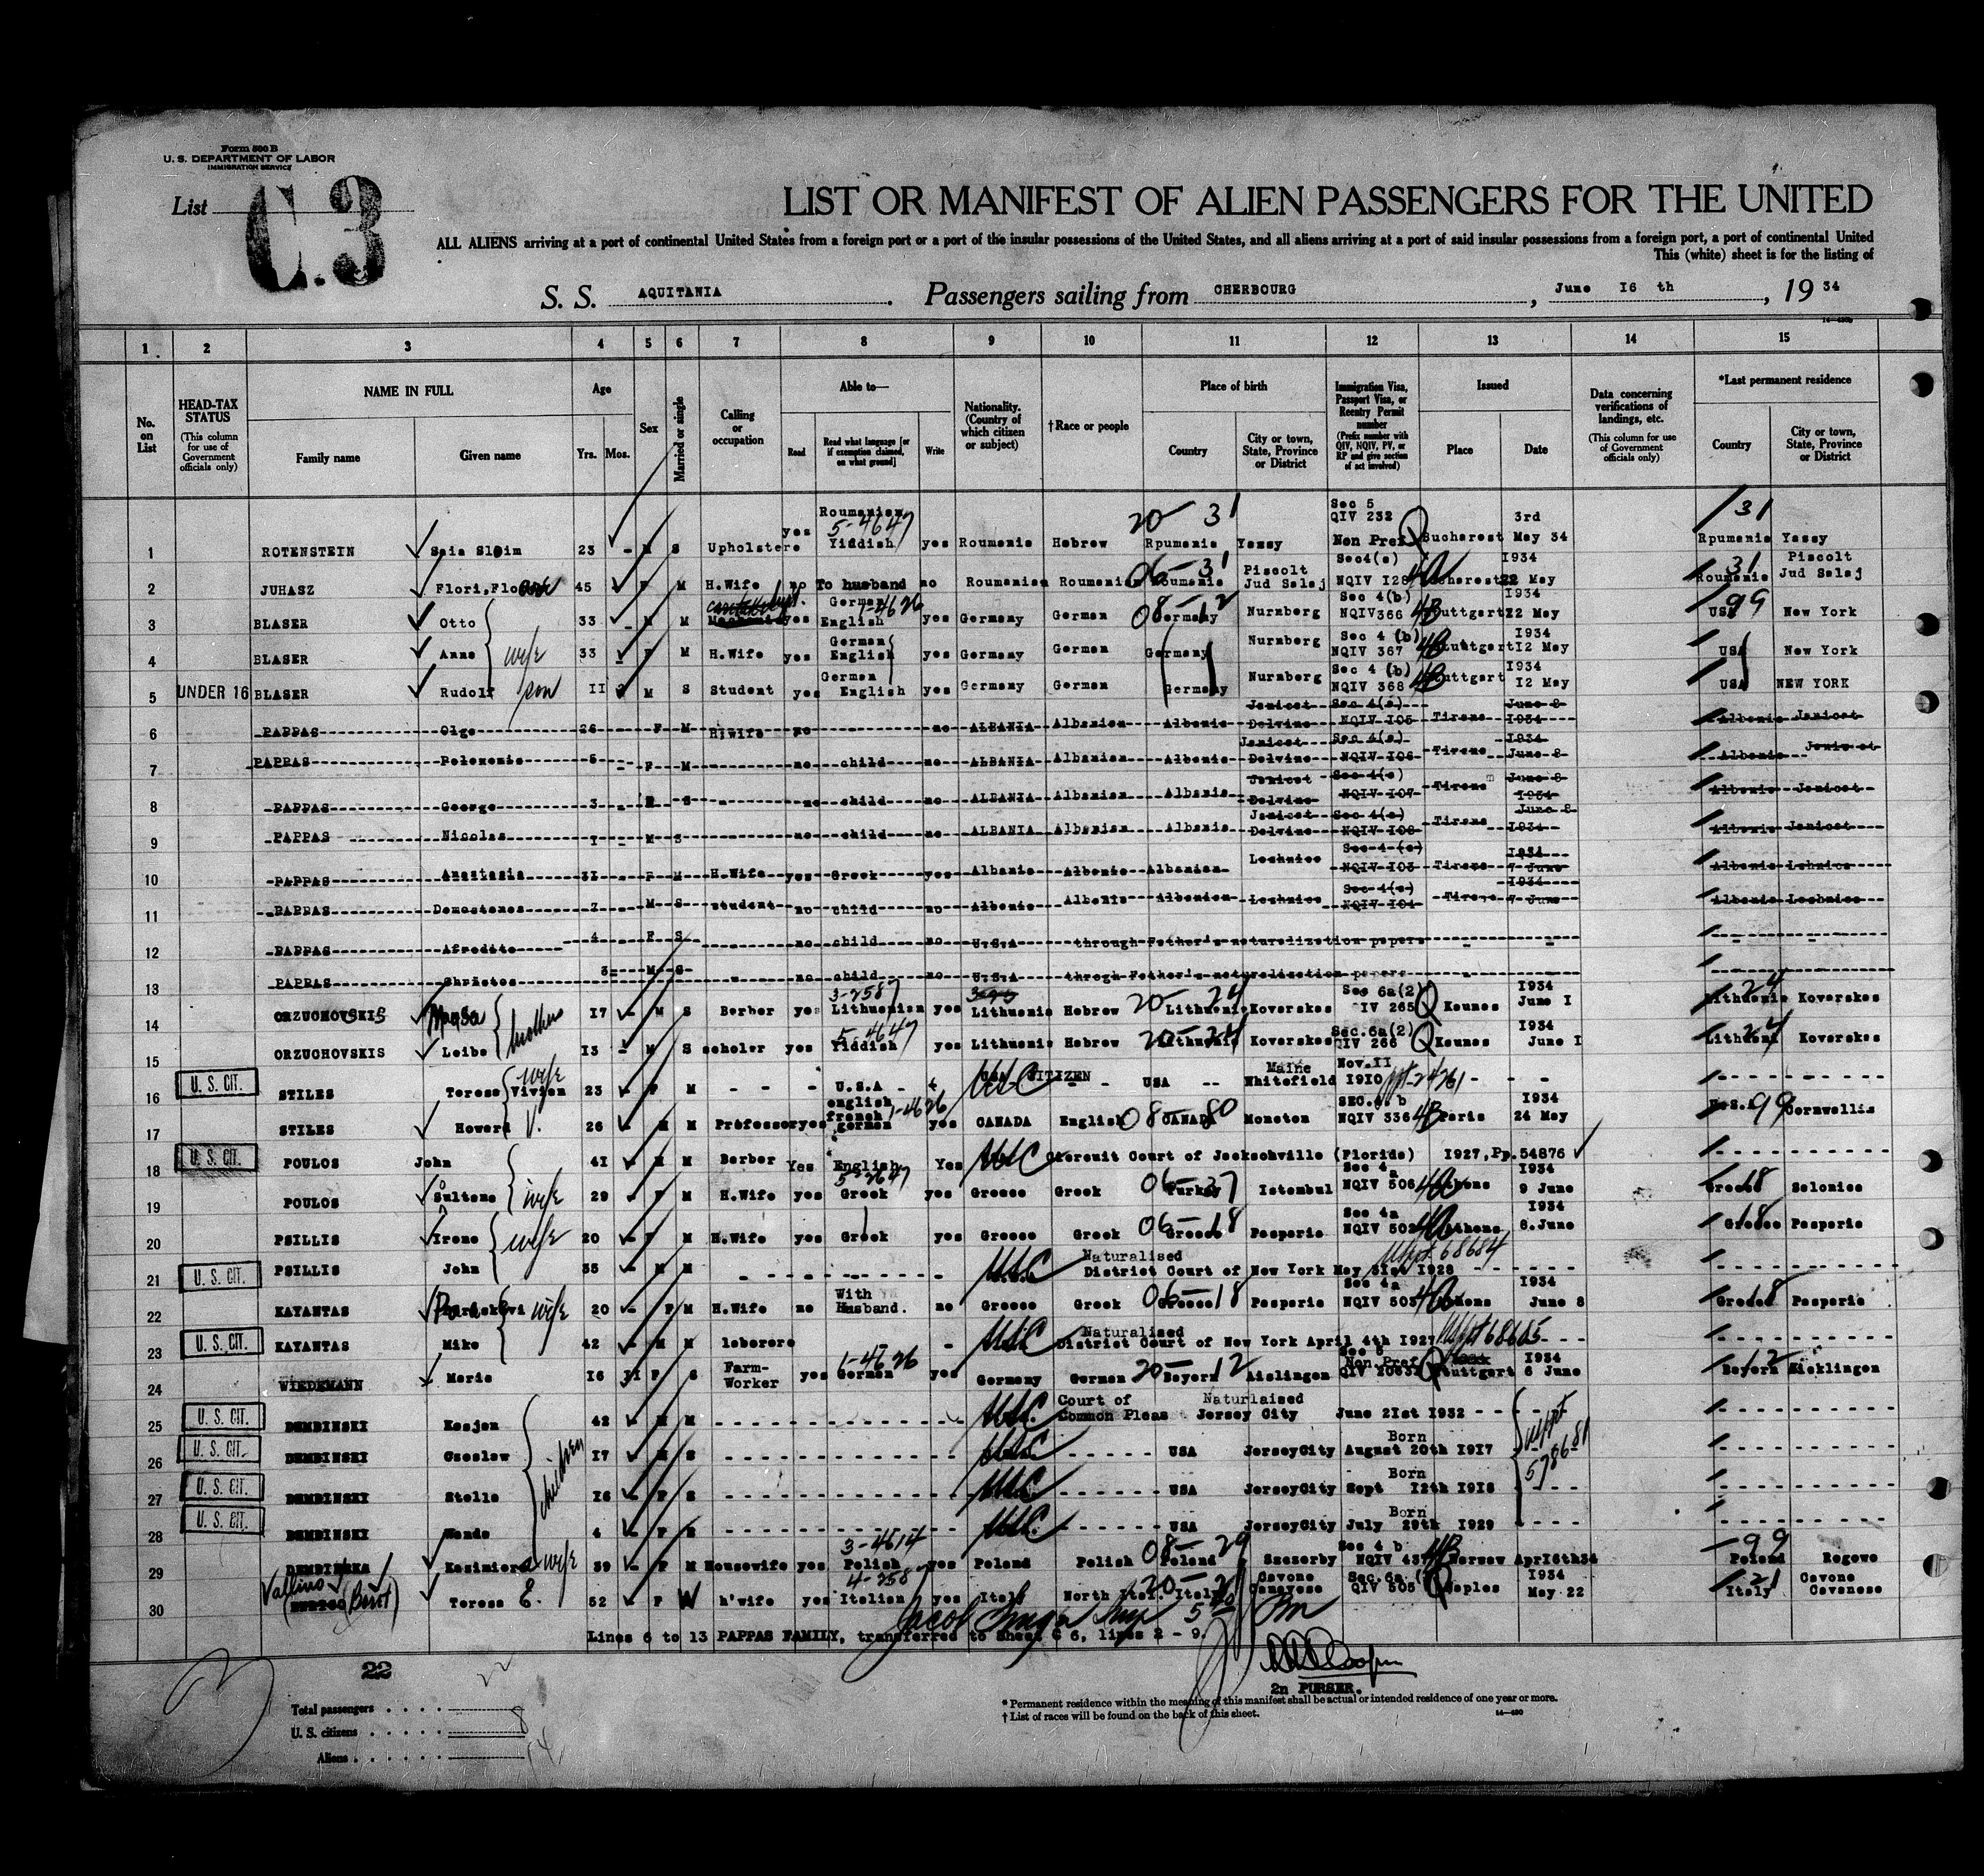 Form 500 B
U. S. DEPARTMENT OF LABOR
IMMIGRATION SERVICE
List C.3
LIST OR MANIFEST OF ALIEN PASSENGERS FOR THE UNITED
ALL ALIENS arriving at a port of continental United States from a foreign port or a port of the insular possessions of the United States, and all aliens arriving at a port of said insular possessions from a foreign port, a port of continental United
This (white) sheet is for the listing of
S. S. AQUITANIA . Passengers sailing from CHERBOURG , June 16 th , 19 34
1 2 3 4 5 6 7 8 9 10 11 12 13 14 15
No. on List
HEAD-TAX STATUS (This column for use of Government officials only)
NAME IN FULL Family name Given name
Age Yrs. Mos.
Sex
Married or single
Calling or occupation
Able to— Read Read what language [or if exemption claimed, on what ground] Write
Nationality. (Country of which citizen or subject)
†Race or people
Place of birth Country City or town, State, Province or District
Immigration Visa, Passport Visa, or Reentry Permit number (Prefix number with QIV, NQIV, PV, or RP and give section of act involved)
Issued Place Date
Data concerning verifications of landings, etc. (This column for use of Government officials only)
*Last permanent residence Country City or town, State, Province or District
1 ROTENSTEIN 23 - M S Upholstere yes Roumanian Yiddish 5-4647 yes Roumania Hebrew 20 - 31 Rpumania Yassy Sec 5 QIV 232 Non Pref Q Bucharest 3rd May 34 31 Rpumania Yassy
2 JUHASZ 45 F M H.Wife no To husband no Roumanian Roumanian 06 - 31 Roumania Piscolt Jud Salaj Sec4(a) NQIV 4A Bucharest 1934 22 May 31 Roumania Piscolt Jud Salaj
3 BLASER Otto 33 - M M yes German English 1-4626 yes Germany German 08 - 12 Germany Nurnberg Sec 4(b) NQIV366 4B Stuttgart 1934 12 May 99 USA New York
4 BLASER Anna wife 33 - F M H.Wife yes German English yes Germany German Germany Nurnberg Sec 4 (b) NQIV 367 4B Stuttgart 1934 12 May USA New York
5 UNDER 16 BLASER Rudolf son 11 M S Student yes German English yes Germany German Germany Nurnberg Sec 4 (b) NQIV 368 4B Stuttgart 1934 12 May USA NEW YORK
6 PAPPAS Olga 26 F M H.Wife no no ALBANIA Albanian Albania Janicat Delvine Sec 4(a) NQIV 105 Tirana June 8 1934 Albania Janicat
7 PAPPAS Polexenia 5 - F M no child no ALBANIA Albanian Albania Janicat Delvine Sec 4(a) NQIV 106 Tirana 1934 June 8 Albania Janicat
8 PAPPAS George 3 - M S no child no ALBANIA Albanian Albania Janicat Delvine Sec 4(a) NQIV 107 Tirana June 8 1934 Albania Janicat
9 PAPPAS Nicolas 1 - M S no child no ALBANIA Albanian Albania Janicat Delvine Sec 4(a) NQIV 108 Tirana June 8 1934 Albania Janicat
10 PAPPAS Anastasia 31 - F M H.Wife yes Greek yes Albania Albania Albanian Leshnica Sec 4 (a) NQIV 103 Tirana 1934 7 June Albania Leshnica
11 PAPPAS Demostenes 7 M S student no child no Albania Albania Albanian Leshnica Sec 4(a) NQIV 104 Tirana 1934 7 June Albania Leshnica
12 PAPPAS Afredite 4 F S no child no U.S.A through Father's naturalization papers
13 PAPPAS Christos 3 M S no child no U.S.A throgh Father's naturalization papers
14 ORZUCHOVSKIS brother 17 - M S Berber yes Lithuanian 3-2587 yes Lithuania Hebrew 20 - 24 Lithuania Koverskes Sec 6a(2) IV 265 Q Kaunes 1934 June 1 24 Lithuania Koverskes
15 ORZUCHOVSKIS Leibe 13 - M S scholar yes Yiddish 5-4647 yes Lithuania Hebrew 20 - 24 Lithuania Koverskes Sec.6a(2) QIV 266 Q Kaunes 1934 June 1 24 Lithuani Koverskes
16 U. S. CIT. STILES Teresa Vivien wife 23 F M - - - U.S.A - USC CITIZEN USA -- Maine Whitefield Nov.11 1910
17 STILES Howard V. 26 M M Professor yes english french german 1-4626 yes CANADA English 08 - 80 CANADA Moncton SEC.4 b NQIV 336 4B Paris 1934 24 May U.S.A 99 Cornwallis
18 U. S. CIT. POULOS John 41 - M M Berber Yes English Yes USC Cercuit Court of Jacksohville (Florida) 1927, Pp.54876
19 POULOS Sultana wife 29 - F M H.Wife yes Greek 5-2647 yes Greece Greek 06 - 37 Turkey Istambul Sec 4a NQIV 506 4A Athens 1934 9 June 18 Greece Salonica
20 PSILLIS Irene wife 20 - F M H.Wife yes Greek yes Greece Greek 06 - 18 Greece Pesperia Sec 4a NQIV 502 4A Athens 1934 8.June 18 Greece Pesperia
21 U. S. CIT. PSILLIS John 35 - M M USC Naturalised District Court of New York May 31st 1928 68684
22 KAYANTAS Paraskevi wife 20 - F M H.Wife no With Husband. no Greece Greek 06 - 18 Greece Pesperia Sec 4a NQIV 503 4A Athens 1934 June 8 18 Greece Pesperia
23 U. S. CIT. KAYANTAS Mike 42 - M M laborere - USC Naturalised District Court of New York April 4th 1927 68685
24 WIEDEMANN Marie 16 11 F S Farm-Worker yes German 1-4626 yes Germany German 20 - 12 Bayern Aislingen Sec 5 Non Pref QIV Q Stuttgart 1934 6 June 12 Bayern
25 U. S. CIT. DEMBINSKI Kasjen 42 - M M USC Court of Common Pleas Naturlaised Jersey City June 21st 1932
26 U. S. CIT. DEMBINSKI Czeslaw 17 - M S USC USA JerseyCity Born August 20th 1917 578681
27 U. S. CIT. DEMBINSKI Stella children 16 - F S USC USA JerseyCity Born Sept 12th 1918
28 U. S. CIT. DEMBINSKI Wanda 4 - F S USC USA JerseyCity Born July 29th 1929
29 DEMBINSKA Kazimiera wife 39 - F M Housewife yes Polish 3-4614 yes Poland Polish 08 - 29 Poland Szczerby Sec 4 b NQIV 437 4B Warsaw Apr16th34 99 Poland Rogowo
30 Vallino (Borot) Teresa E. 52 - F W h'wife yes Italian 4-2587 yes Italy North Ital. 20 - 21 Italy Cavone Canavese Sec.6a QIV 505 Q Naples 1934 May 22 21 Italy Cavone Cavanese
Lines 6 to 13 PAPPAS FAMILY, transferred to sheet C 6, lines 2 - 9.
22
2n PURSER.
Total passengers 22
U. S. citizens 8
Aliens 14
* Permanent residence within the meaning of this manifest shall be actual or intended residence of one year or more.
† List of races will be found on the back of this sheet.
14—480